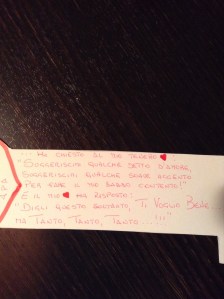 ... HO CHIESTO AL TUO TENERO ♥
"SUGGERISCIMI QUALCHE DETTO D'AMORE,
SUGGERISCIMI QUALCHE SOAVE ACCENTO
PER FARE IL TUO BABBO CONTENTO!"
E IL TUO ♥ HA RISPOSTO:
"DIGLI QUESTO SOLTANTO, TI VOGLIO BENE
MA TANTO, TANTO, TANTO ...!!!"